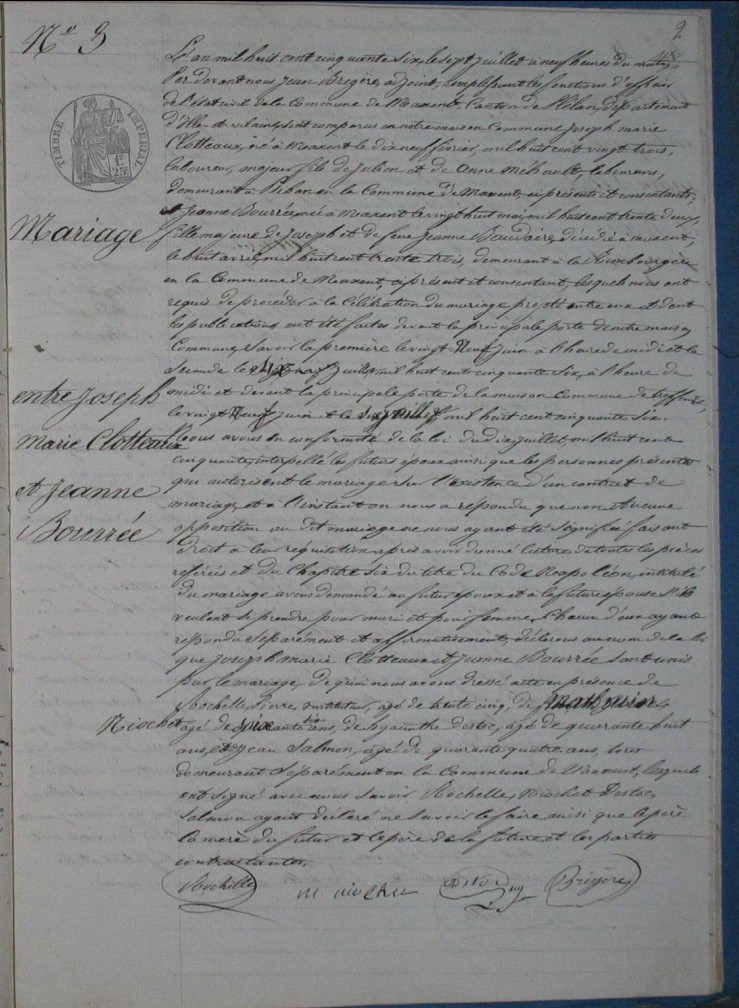 2
N° 3
TIMBRE IMPERIAL
1f 25c
Mariage
entre Joseph
marie Clotteaux
et Jeanne
Bourrée
L'an mil huit cent cinquante six, le sept juillet à neuf heures du matin,
Par devant nous Jean Brégère, adjoint, remplissant les fonctions d'officier
de l'état civil de la Commune de Maxent, Canton de Plélan, département
d'Ille et vilaine, sont comparus en notre maison Commune Joseph marie
Clotteaux, né à Maxent le dix neuf février, mil huit cent vingt trois,
laboureur, majeur fils de Julien et de Anne Méhault, laboureurs,
demeurant à en la Commune de Maxent, ci présents et consentants,
et Jeanne Bourrée, née à Maxent le vingt huit mai, mil huit cent trente deux,
fille majeure de Joseph et de feue Jeanne Baudaire, décédée à maxent,
le huit avril, mil huit cent trente trois, demeurant à la
en la Commune de Maxent, ci présent et consentant, lesquels nous ont
requis de procéder à la Célébration du mariage projeté entre eux et dont
les publications ont été faites devant la principale porte de notre maison
Commune, Savoir la première le vingt Neuf juin à l'heure de midi et la
Seconde le six juillet mil huit cent cinquante six, à l'heure de
midi et devant la principale porte de la maison Commune de Treffendel,
le vingt Neuf juin et le six juillet mil huit cent cinquante six.
Nous avons en conformité de la loi du dix juillet mil huit cent
cinquante, interpellé les futurs époux ainsi que les personnes présentes
qui autorisent le mariage sur l'existence d'un contrat de
mariage, et à l'instant on nous a répondu que non Aucune
opposition au dit mariage ne nous ayant été Signifiée faisant
droit à leur réquisition après avoir donné lecture de toutes les pièces
référées et du Chapitre six du titre du Code Napoléon, intitulé
du mariage avons demandé au futur époux et à la future épouse S'ils
veulent se prendre pour mari et pour femme, Chacun d'eux ayant
répondu Séparément et affirmativement, déclarons au nom de la loi
que Joseph marie Clotteaux et Jeanne Bourrée sont unis
par le mariage, de quoi nous avons dressé acte en présence de
Rochelle, Pierre, instituteur, agé de trente cinq, de Mathurin
Niochet agé de soixante six ans, de hyacinthe agé de quarante huit
ans, et Jean Salmon, agé de quarante quatre ans, tous
demeurant Séparément en la Commune de Maxent, lesquels
ont signé avec nous Savoir Rochelle, Niochet
Salmon ayant déclaré ne savoir le faire ainsi que le père
la mère du futur et le père de la future et les parties
contractantes.
Rochelle m niochet Brégère